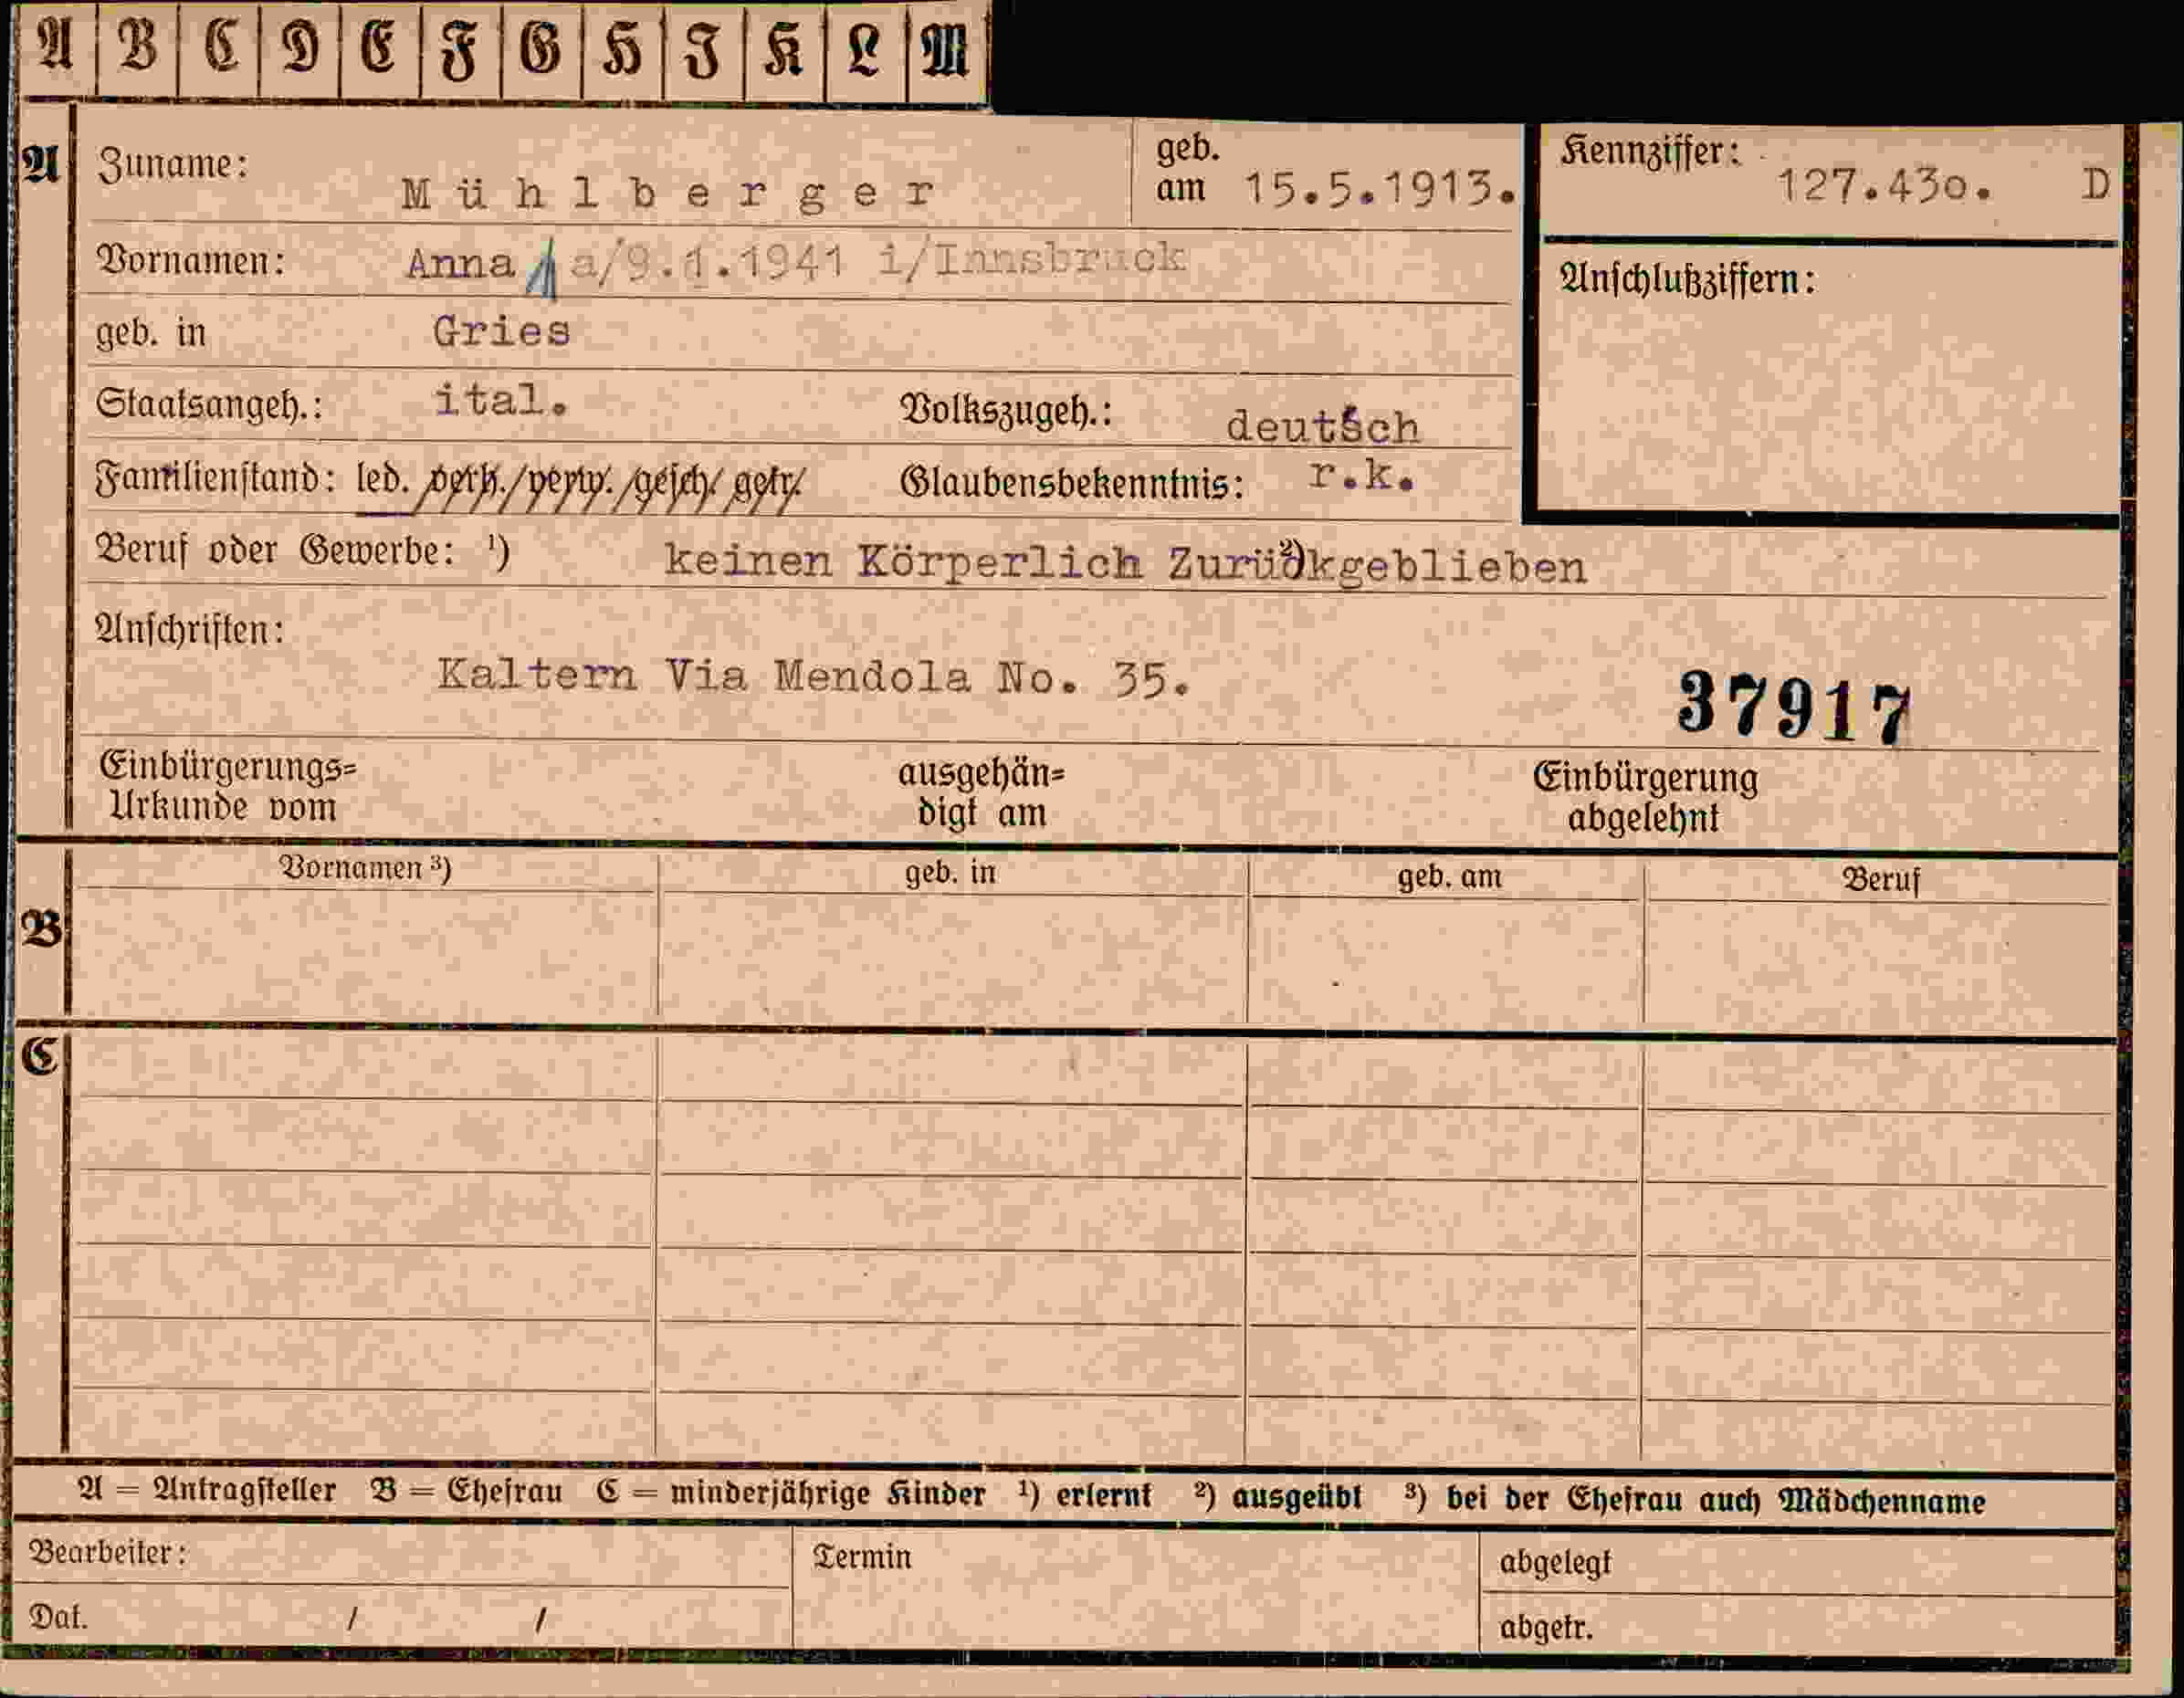 A B C D E F G H I K L M
A Zuname: Mühlberger geb. am 15.5.1913. Kennziffer: 127.430. D
Vornamen: Anna a/9.1.1941 i/Innsbruck Anschlußziffern:
geb. in Gries
Staatsangeh.: ital. Volkszugeh.: deutsch
Familienstand: led. verh./verw./gesch./getr. Glaubensbekenntnis: r.k.
Beruf oder Gewerbe: ¹) keinen Körperlich Zurückgeblieben ²)
Anschriften:
Kaltern Via Mendola No. 35.
37917
Einbürgerungs= ausgehän= Einbürgerung
Urkunde vom digt am abgelehnt
Vornamen ³) geb. in geb. am Beruf
B
C
A = Antragsteller B = Ehefrau C = minderjährige Kinder ¹) erlernt ²) ausgeübt ³) bei der Ehefrau auch Mädchenname
Bearbeiter: Termin abgelegt
Dat. / / abgetr.